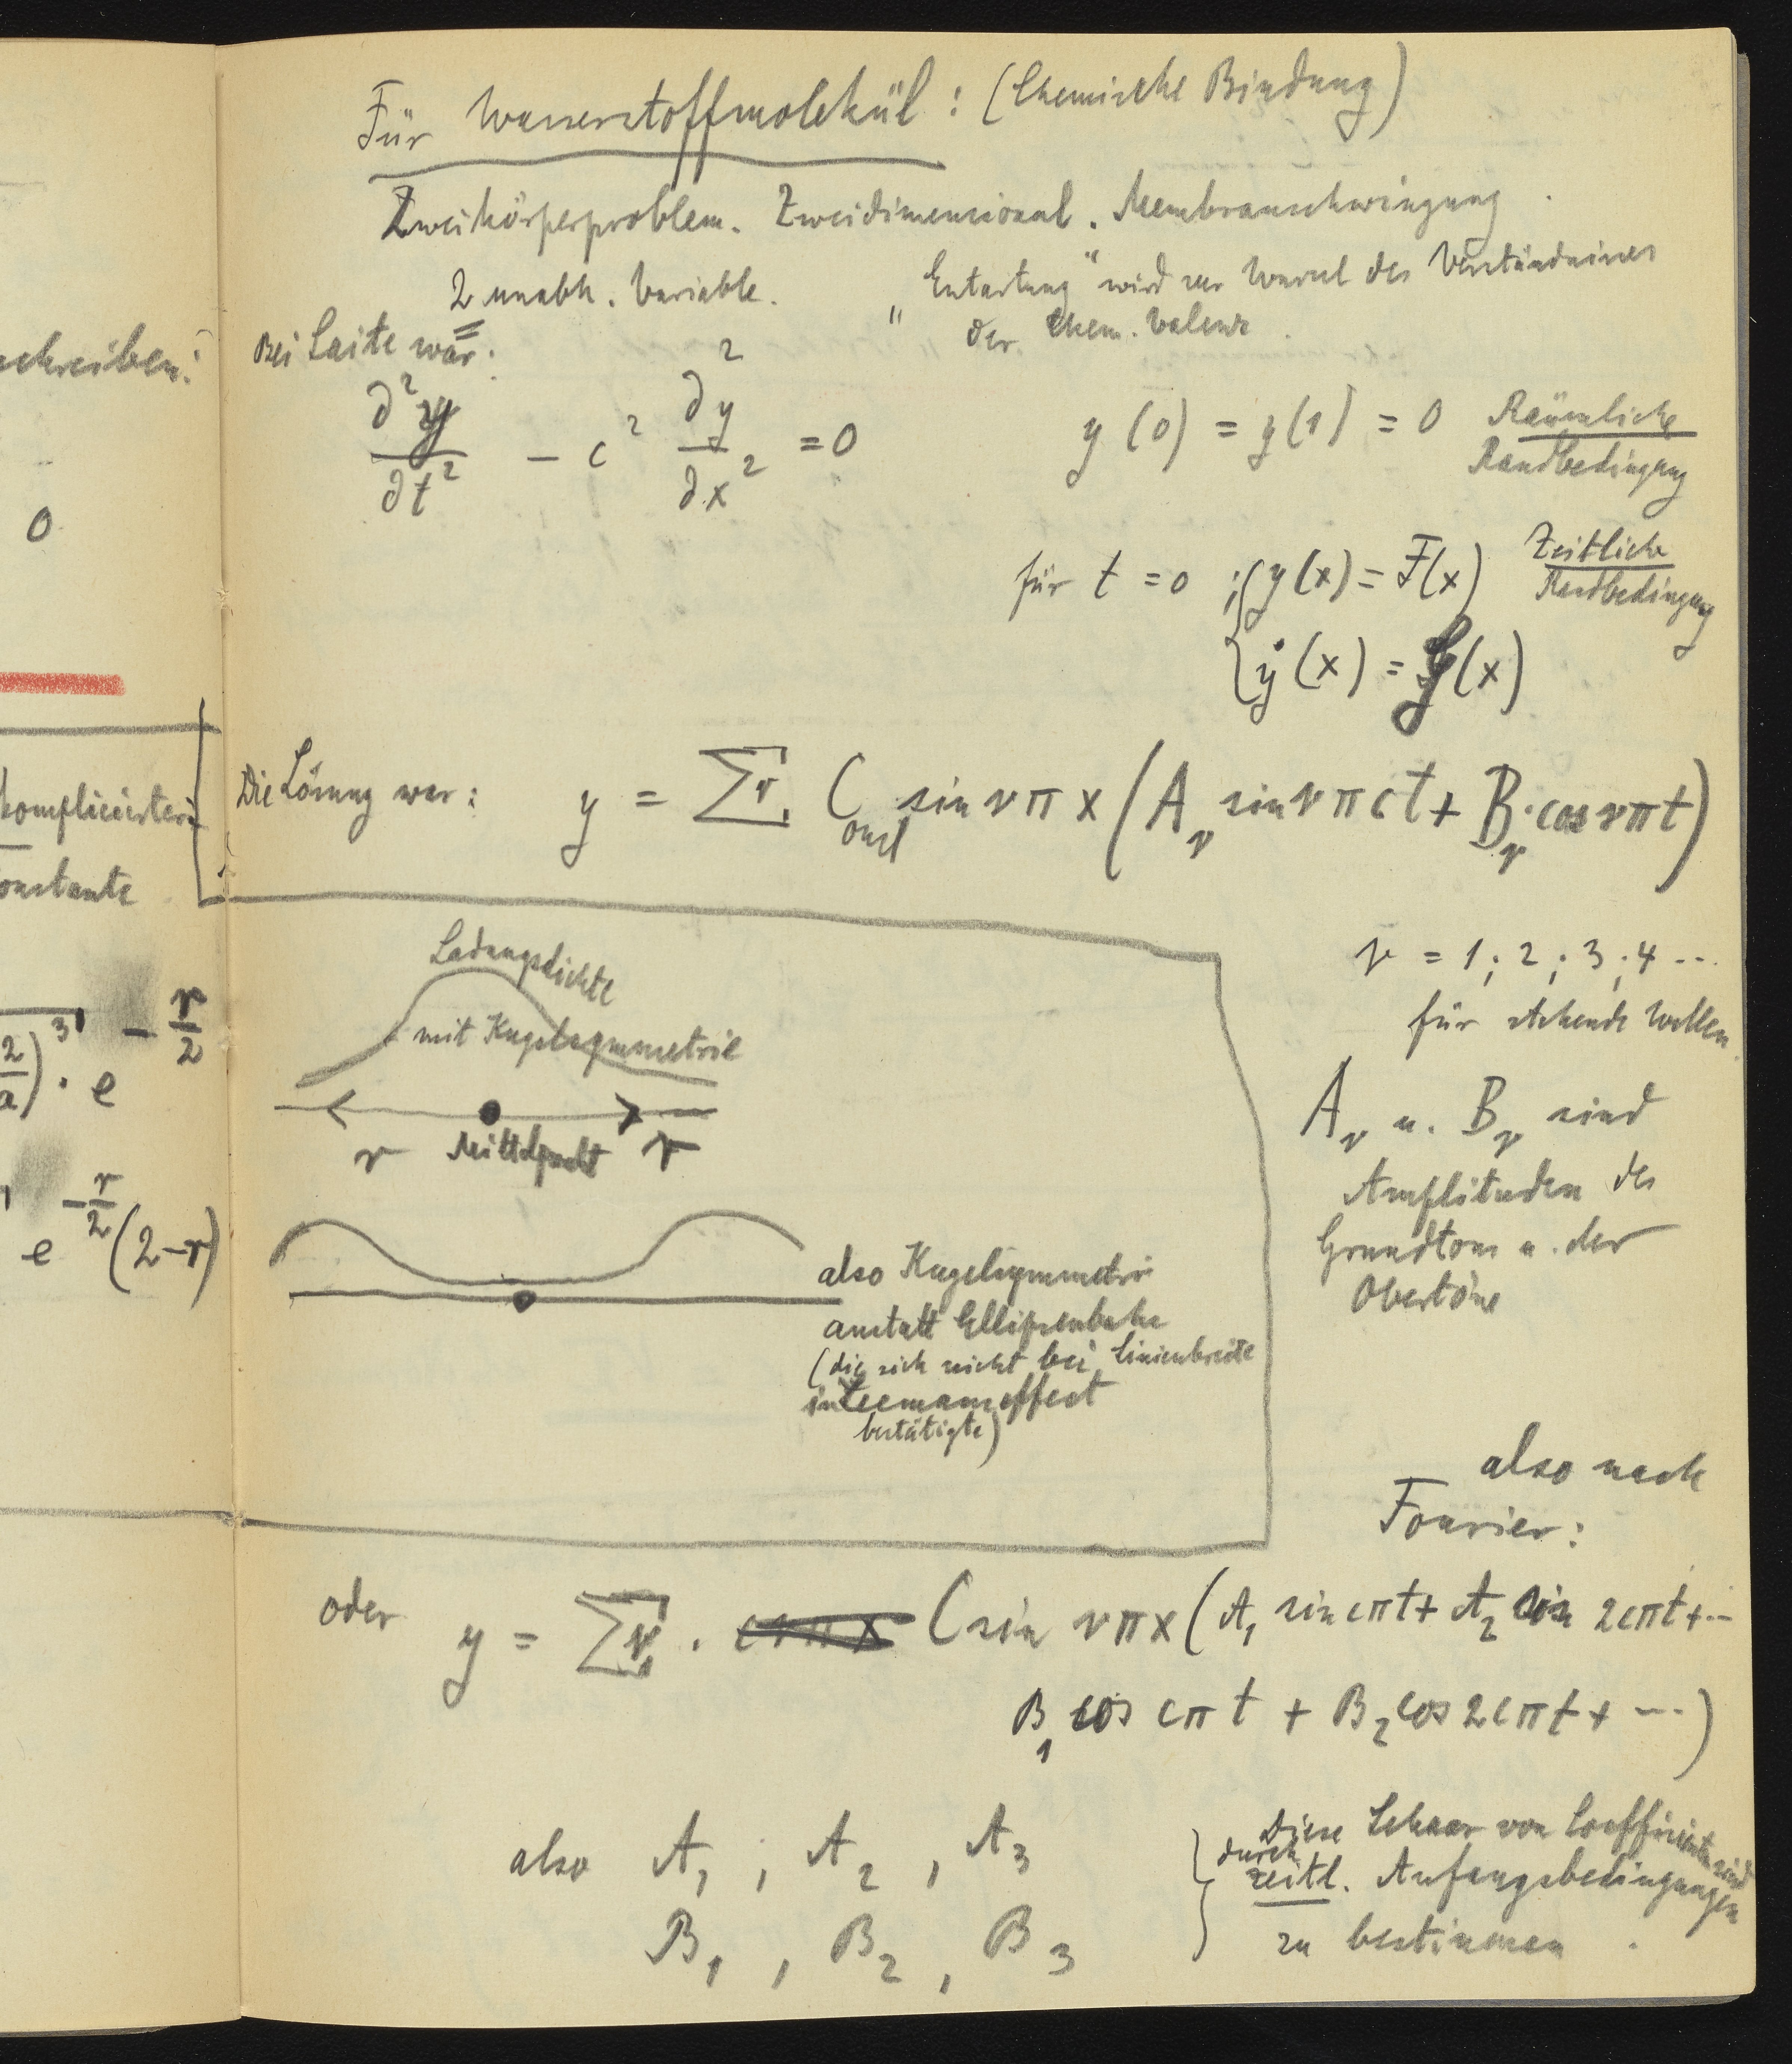 Für Wasserstoffmolekül: (Chemische Bindung)
Zweikörperproblem. Zweidimensional. Membranschwingung.
2 unabh. Variable.
„Entartung" wird zur Wurzel des Verständnisses
der chem. Valenz.
Bei Saite war:
∂²y/∂t² − c² ∂²y/∂x² = 0
y(0) = y(1) = 0 Räumliche
Randbedingung
für t = 0 ; y(x) = F(x) Zeitliche
Randbedingung
ẏ(x) = g(x)
Die Lösung war: y = Σ C sin νπx (A_ν sin νπct + B_ν · cos νπt)
ν = 1; 2; 3; 4 ...
für stehende Wellen.
A_ν u. B_ν sind
Amplituden des
Grundtons u. der
Obertöne
Ladungsdichte
mit Kugelsymmetrie
r Mittelpunkt r
also Kugelsymmetrie
anstatt Ellipsenbahn
(die sich nicht bei Linienbreite
in Zeemaneffect
bestätigte)
also nach
Fourier:
oder y = Σ ν₁ . C sin νπx (A₁ sin cπt + A₂ sin 2cπt + ...
B₁ cos cπt + B₂ cos 2cπt + ...)
also A₁ ; A₂ , A₃
B₁ , B₂ , B₃
Diese Schaar von Coefficienten sind
durch
zeitl. Anfangsbedingungen
zu bestimmen.
schreiben:
0
komplicierter
onstante
2/a)³ · e − r/2
e − r/2 (2−r)